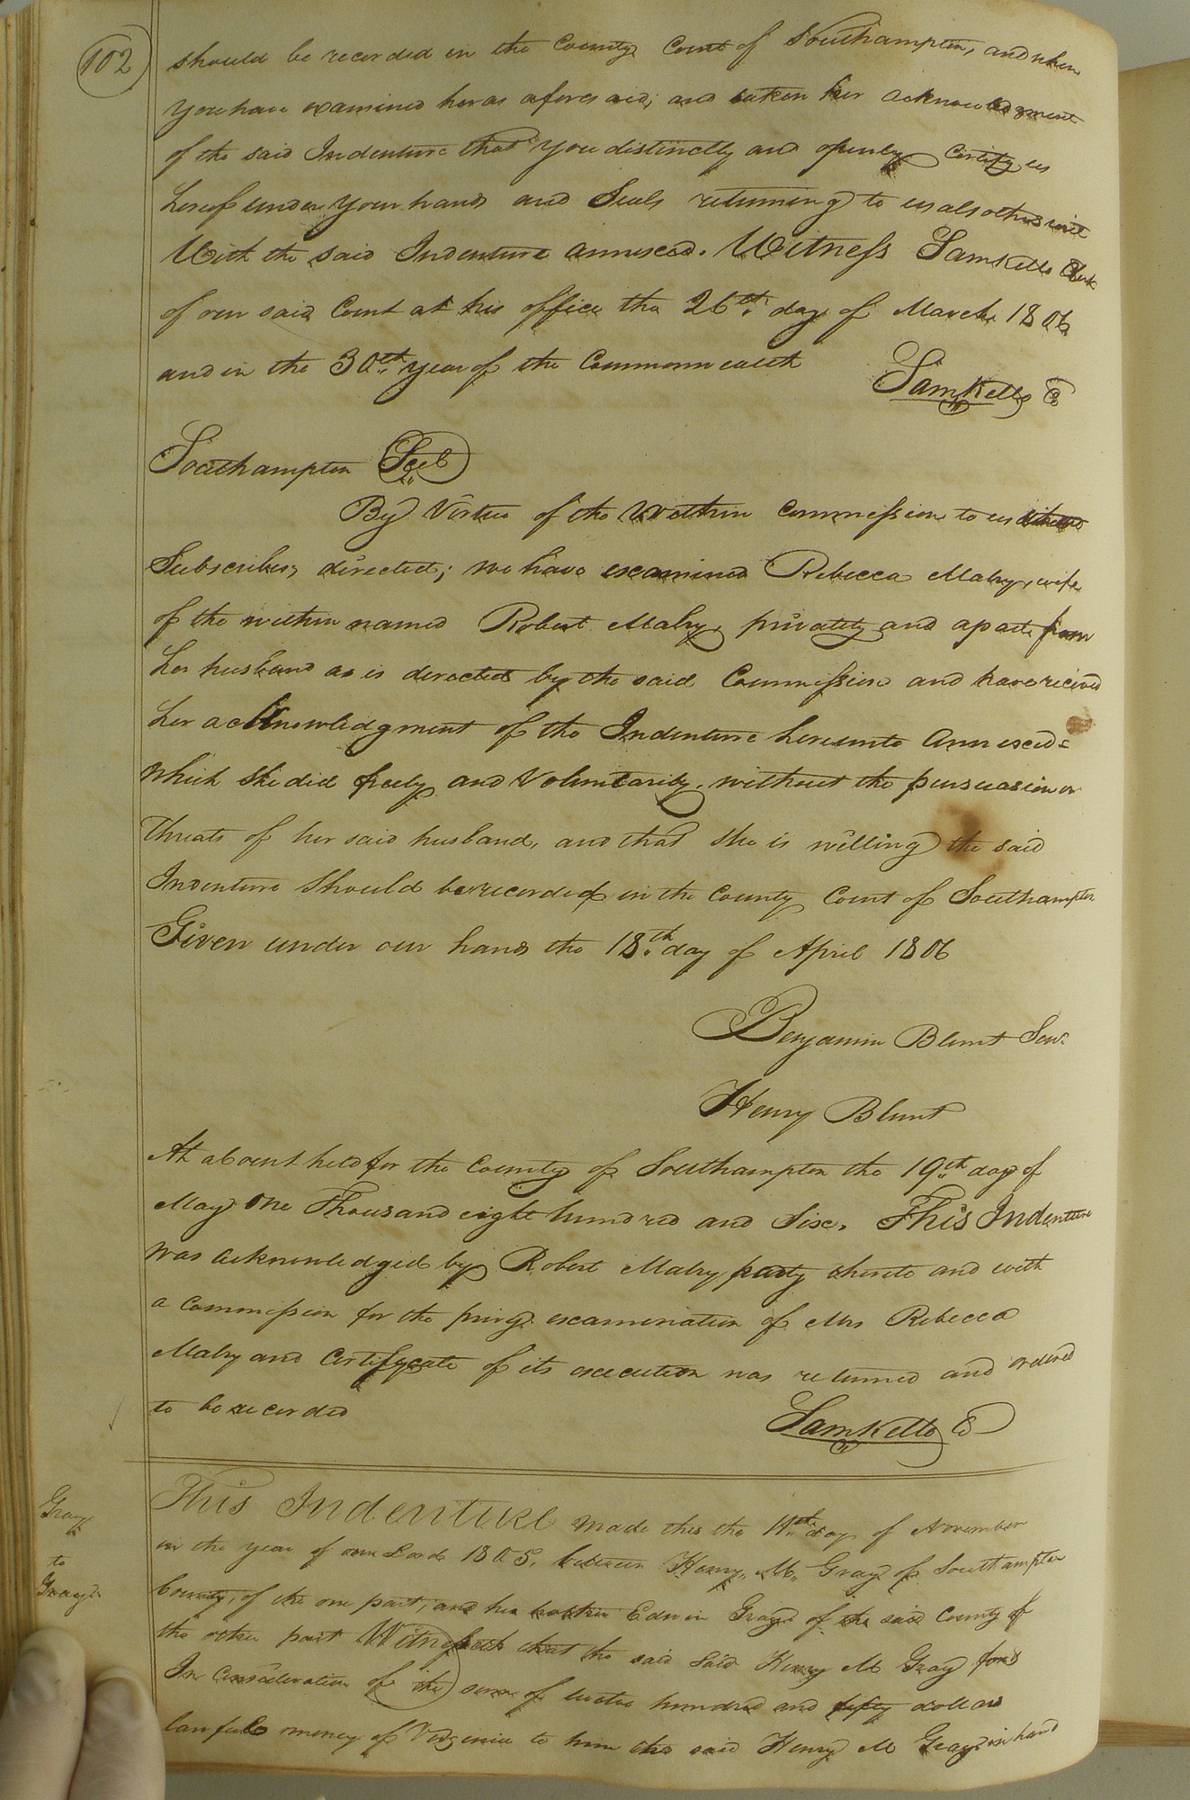 102
should be recorded in the County Court of Southampton, and when
you have examined her as aforesaid, and taken her acknowledgment
of the said Indenture that you distinctly and openly certify us
hereof under your hands and Seals returning to us also this writ
With the said Indenture annexed. Witness Saml Kello Clerk
of our said Court at his office the 26th day of March 1806
and in the 30th year of the Commonwealth
Saml Kello C
Southampton Sct
By Virtue of the Within Commission to us
Subscribers directed; we have examined Rebecca Mabry, wife
of the within named Robert Mabry, privately and apart from
her husband as is directed by the said Commission and have received
her acknowledgment of the Indenture hereunto annexed=
which she did freely and Voluntarily, without the persuasion or
threats of her said husband, and that she is willing the said
Indenture should be recorded in the County Court of Southampton
Given under our hands the 18th day of April 1806
Benjamin Blunt Senr.
Henry Blunt
At a Court held for the County of Southampton the 19th day of
May one Thousand eight hundred and Six. This Indenture
was acknowledged by Robert Mabry party thereto and with
a Commission for the privy examination of Mrs Rebecca
Mabry and Certifycate of its execution was returned and ordered
to be recorded
Saml Kello C
Gray
to
Gray
This Indenture made this the 11th day of November
in the year of our Lord 1805, between Henry M. Gray of Southampton
County, of the one part, and his brother Edwin Gray of the said County of
the other part Witnesseth that the said Said Henry M Gray for &
In Consideration of the sum of twelve hundred and fifty dollars
lawfull money of Virginia to him the said Henry M Gray in hand